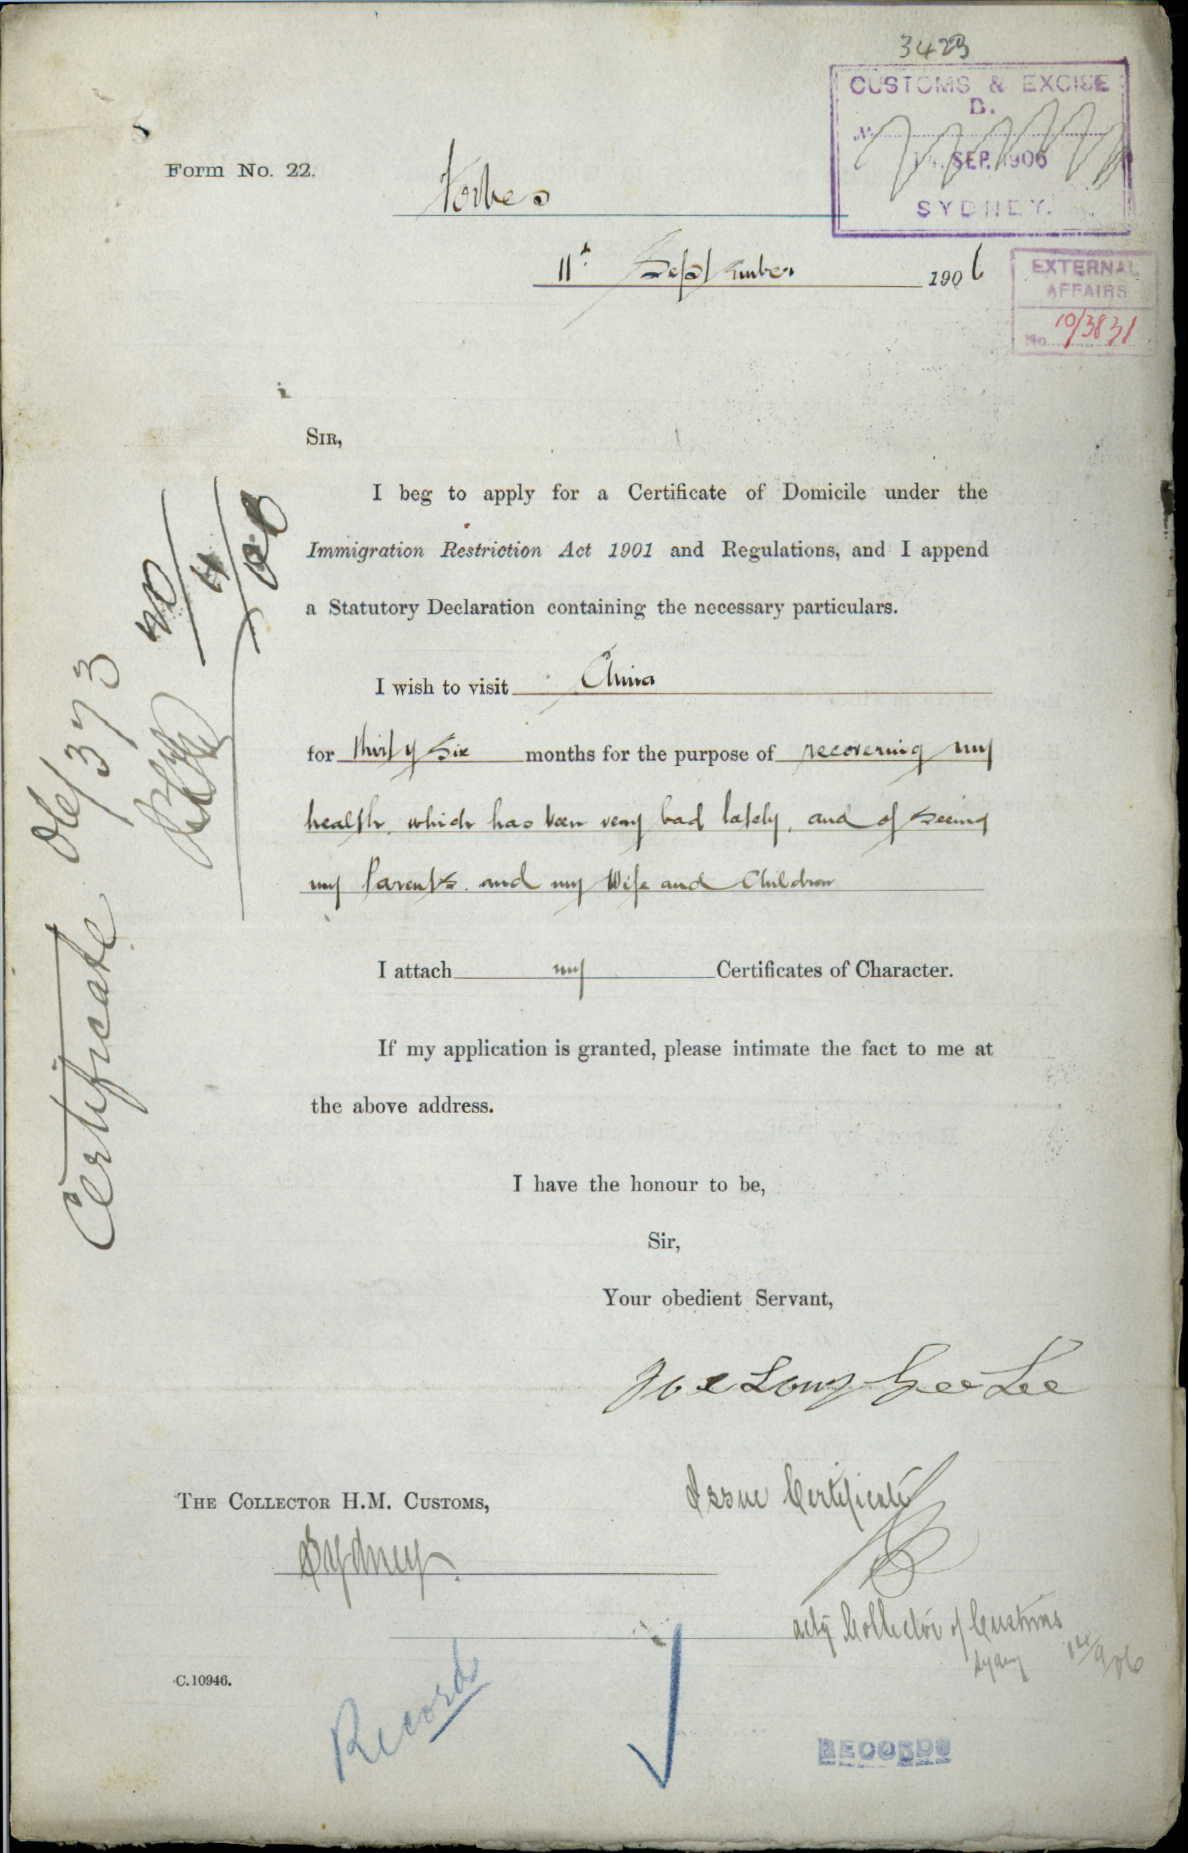 3423
CUSTOMS & EXCISE
D.
14. SEP. 1906
SYDNEY.
Form No. 22.
Forbes
11th September 1906
EXTERNAL
AFFAIRS
No. 10/3831
SIR,
I beg to apply for a Certificate of Domicile under the
Immigration Restriction Act 1901 and Regulations, and I append
a Statutory Declaration containing the necessary particulars.
I wish to visit China
for thirty six months for the purpose of recovering my
health, which has been very bad lately, and of seeing
my Parents and my Wife and Children
I attach my Certificates of Character.
If my application is granted, please intimate the fact to me at
the above address.
I have the honour to be,
Sir,
Your obedient Servant,
Joe Long Gee Lee
THE COLLECTOR H.M. CUSTOMS,
Sydney.
Issue Certificate
actg Collector of Customs
Sydney
C.10946.
Record
RECORDS
Certificate 06/373
20/4/06